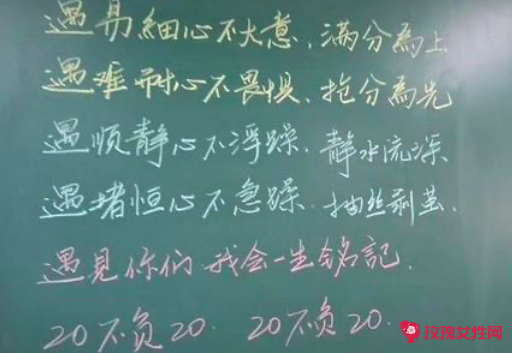 遇易細心不大意、满分為上
遇难耐心不畏惧、抢分為先
遇顺静心不浮躁、静水流深、
遇堵恒心不急躁、抽丝剥茧.
遇見你们我会一生銘記.
20不负20. 20不负20.
玫瑰女性网